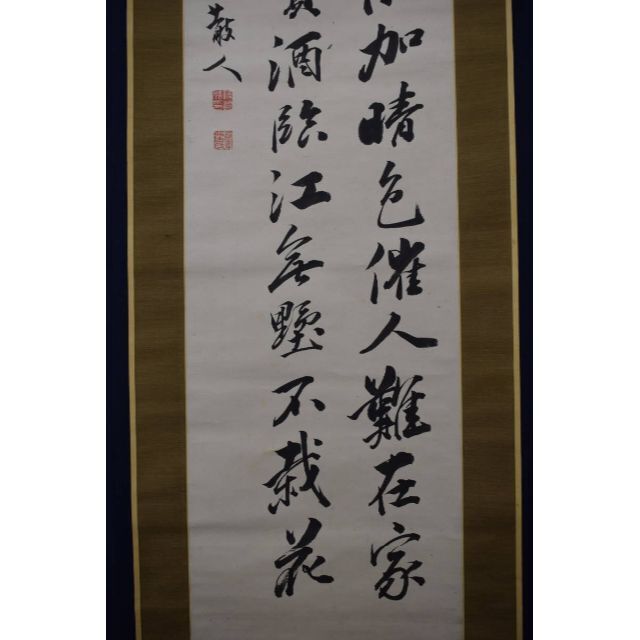 加晴色催人難在家
酒臨江無墅不栽花
散人